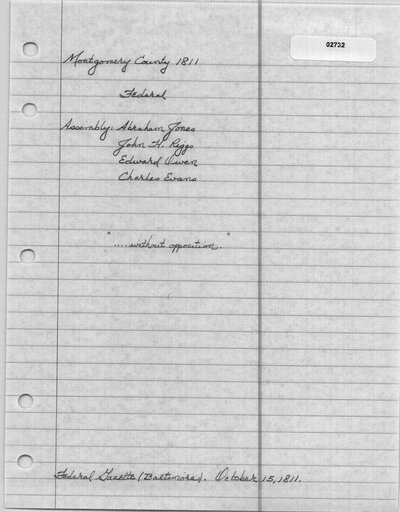 02732
Montgomery County 1811
Federal
Assembly: Abraham Jones
John H. Riggs
Edward Owen
Charles Evans
"....without opposition."
Federal Gazette (Baltimore). October 15, 1811.